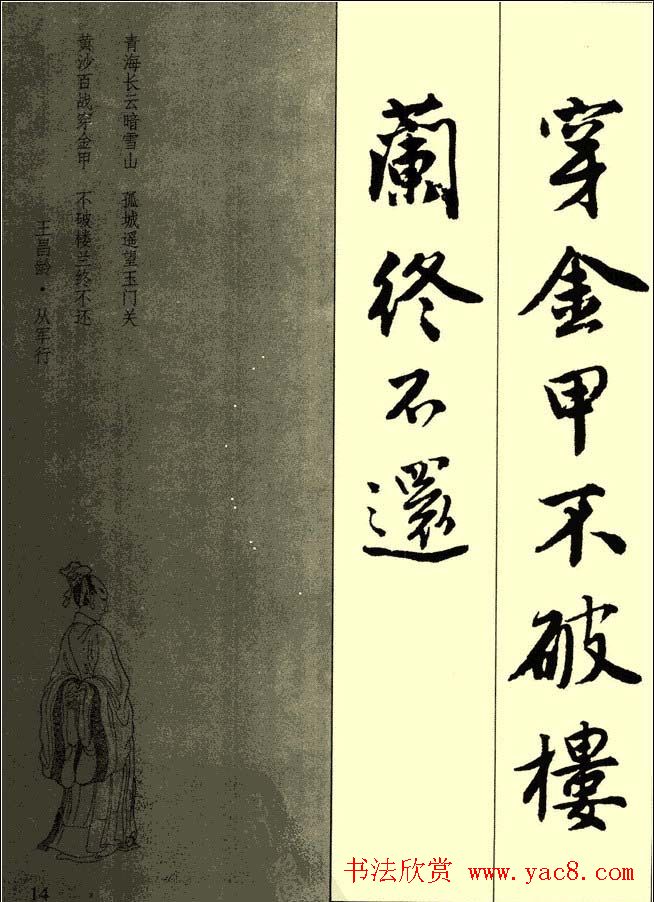 穿金甲不破樓
蘭終不還
青海长云暗雪山 孤城遥望玉门关
黄沙百战穿金甲 不破楼兰终不还
王昌龄·从军行
14
书法欣赏 www.yac8.com